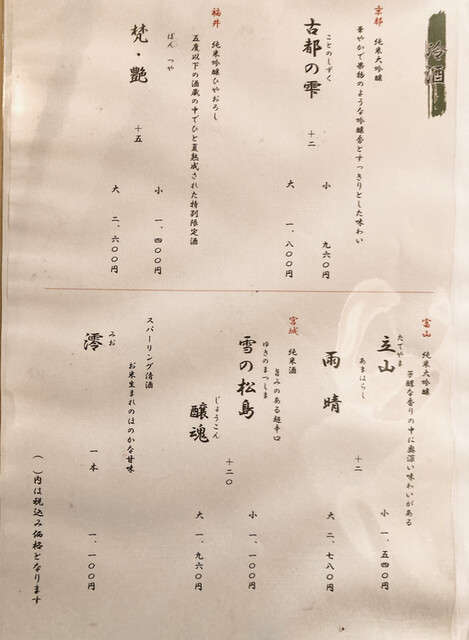 冷酒
京都　純米大吟醸
華やかで果物のような吟醸香とすっきりとした味わい
ことのしずく
古都の雫　十二
小　九六〇円
大　一、八〇〇円
福井　純米吟醸ひやおろし
五度以下の酒蔵の中でひと夏熟成された特別限定酒
ぼん　つや
梵・艶　十五
小　一、四〇〇円
大　二、六〇〇円
富山　純米大吟醸
芳醇な香りの中に奥深い味わいがある
たてやま
立山
あまはらし
雨晴　十二
小　一、五四〇円
大　二、七八〇円
宮城　純米酒
旨みのある超辛口
ゆきのまつしま
雪の松島
じょうこん
醸魂　十二〇
小　一、一〇〇円
大　一、九六〇円
スパーリング清酒
お米生まれのほのかな甘味
みお
澪　一本　一、一〇〇円
（　）内は税込み価格となります